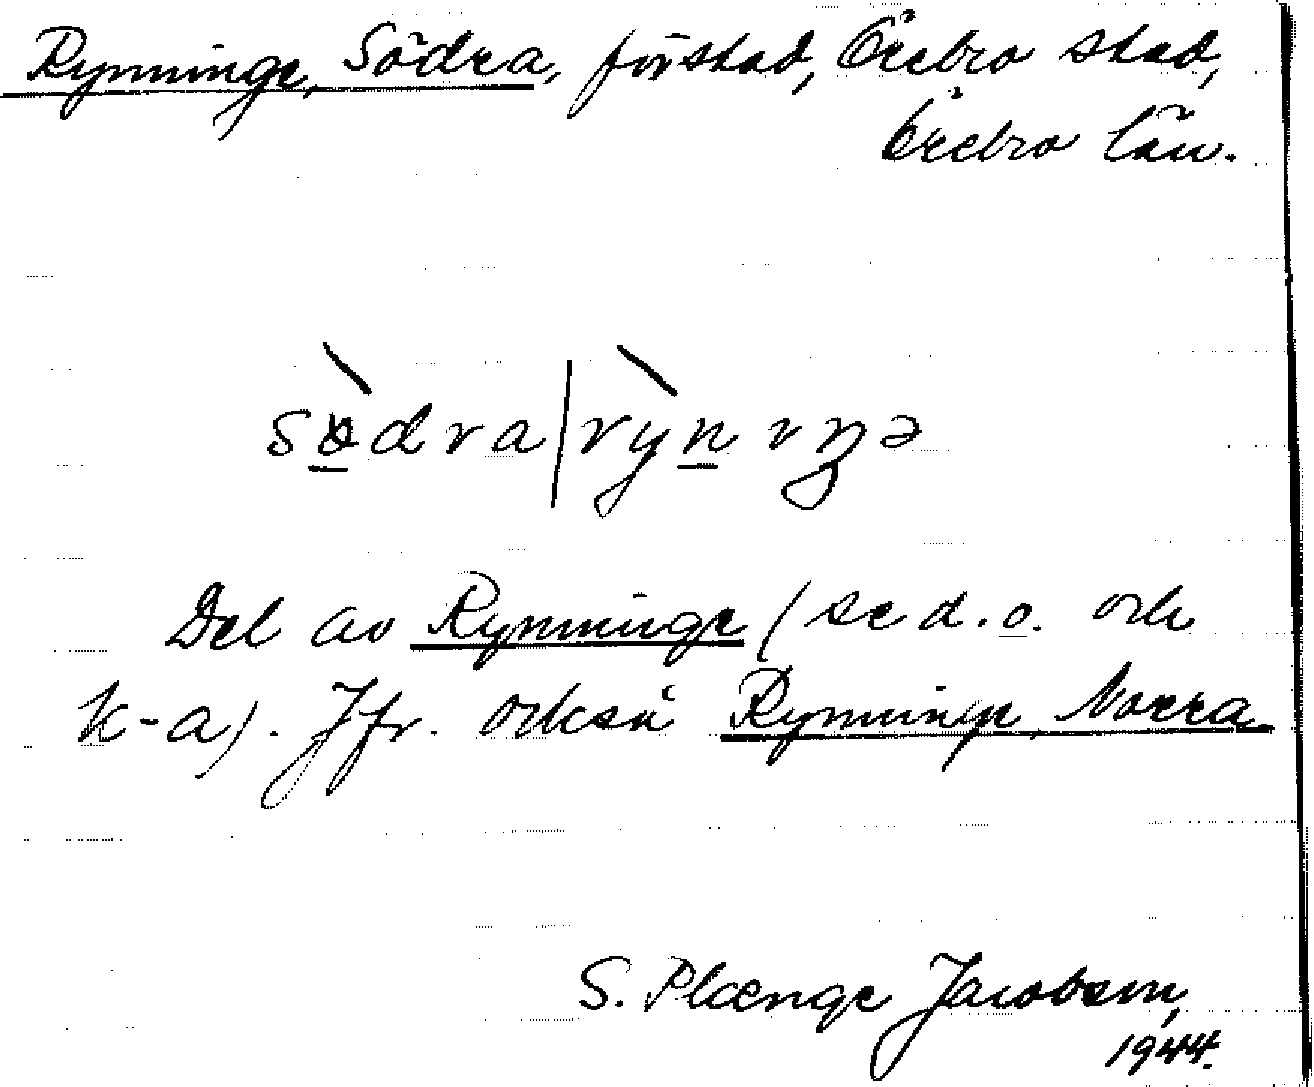 Rynninge, Södra, förstad, Örebro stad,
Örebro län.
sø̀dra|rỳnıŋə
Del av Rynninge (se d.o. och
k-a). Jfr. också Rynninge, Norra
S. Plænge Jacobsen,
1944.